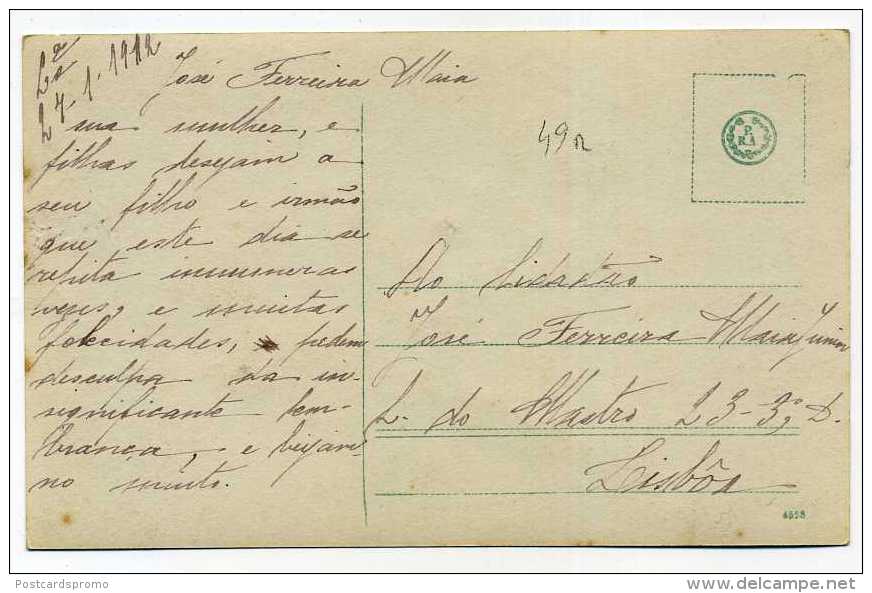 Lxa
27-1-1912
José Ferreira Maia
sua mulher, e
filhas desejam a
seu filho e irmão
que este dia se
repita inumeras
vezes, e muitas
felecidades, pedem
desculpa da in-
significante lem-
brança, e beijam-
no muito.
49
P.
R.A
Ao Cidadão
José Ferreira Maia Junior
L. do Mastro 23-3º, D.
Lisbôa
4698
Postcardspromo
www.delcampe.net